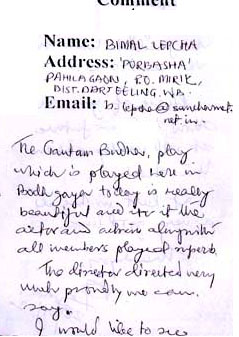 Comment
Name: BIMAL LEPCHA
Address: 'PURBASHA'
PAHILAGAON, P.O. MIRIK,
DIST. DARJEELING, W.B.
Email: b_lepcha@sancharnet.
net.in.
The Gautam Budha, play
which is played here in
Bodh gaya today is really
beautiful and in it the
actor and actress alongwith
all members played superb.
The director directed very
much proudly we can
say.
I would like to see